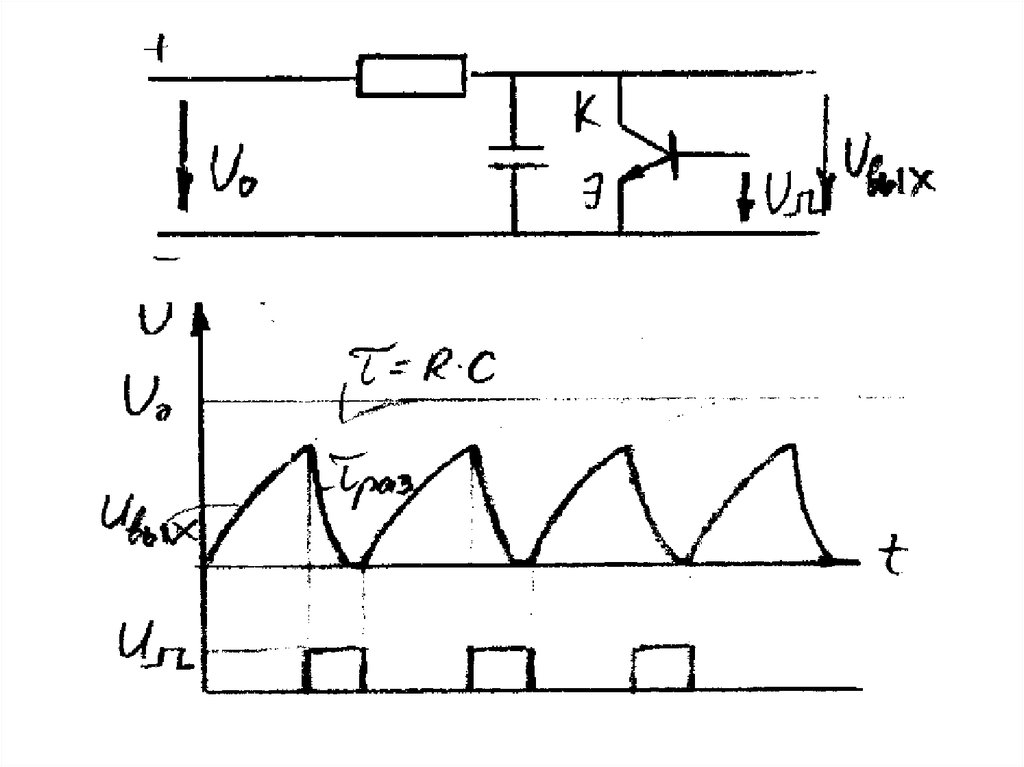 +
K
U₀
Э
U⎍
Uвых
−
U
τ = R·C
U₀
τраз
Uвых
t
U⎍